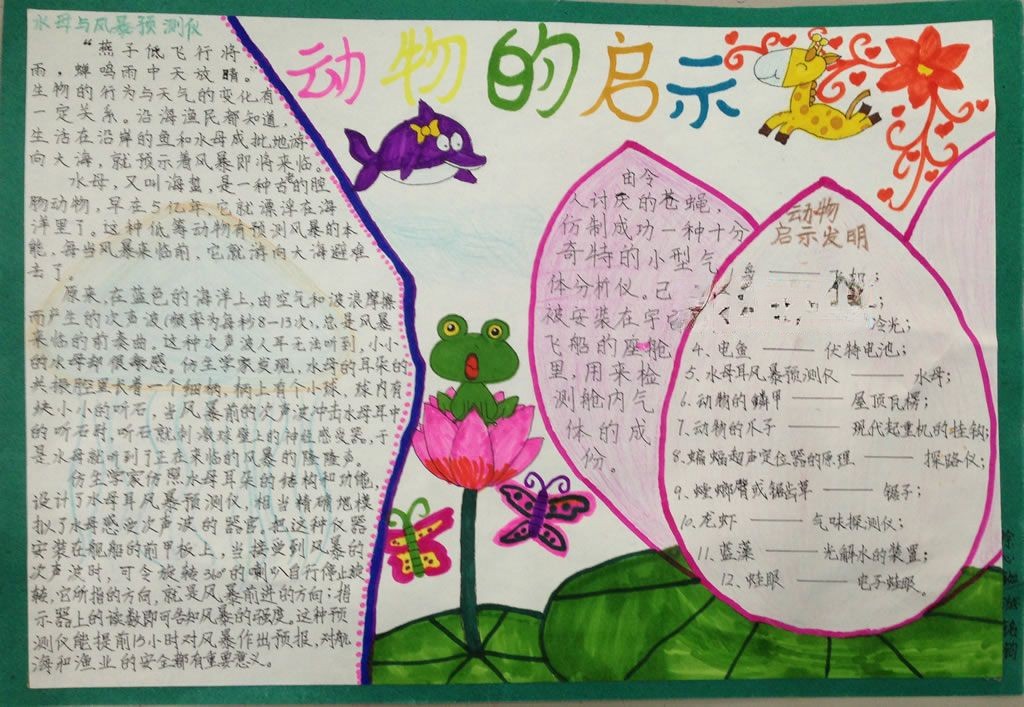 水母与风暴预测仪
“燕子低飞行将
雨，蝉鸣雨中天放晴。”
生物的行为与天气的变化有
一定关系。沿海渔民都知道，
生活在沿岸的鱼和水母成批地游
向大海，就预示着风暴即将来临。
水母，又叫海蜇，是一种古老的腔
肠动物，早在5亿年，它就漂浮在海
洋里了。这种低等动物有预测风暴的本
能，每当风暴来临前，它就游向大海避难
去了。
原来，在蓝色的海洋上，由空气和波浪摩擦
而产生的次声波(频率为每秒8—13次)，总是风暴
来临的前奏曲。这种次声波人耳无法听到，小小
的水母却很敏感。仿生学家发现，水母的耳朵的
共振腔里长着一个细柄，柄上有个小球，球内有
块小小的听石，当风暴前的次声波冲击水母耳中
的听石时，听石就刺激球壁上的神经感受器，于
是水母就听到了正在来临的风暴的隆隆声。
仿生学家仿照水母耳朵的结构和功能，
设计了水母耳风暴预测仪，相当精确地模
拟了水母感受次声波的器官。把这种仪器
安装在舰船的前甲板上，当接受到风暴的
次声波时，可令旋转360°的喇叭自行停止旋
转，它所指的方向，就是风暴前进的方向；指
示器上的读数即可告知风暴的强度。这种预
测仪能提前15小时对风暴作出预报，对航
海和渔业的安全都有重要意义。
动物的启示
由令
人讨厌的苍蝇，
仿制成功一种十分
奇特的小型气
体分析仪。已
被安装在宇宙
飞船的座舱
里，用来检
测舱内气
体的成
份。
动物
启示发明
冷光；
4、电鱼 —— 伏特电池；
5.水母耳风暴预测仪 —— 水母；
6.动物的鳞甲 —— 屋顶瓦楞；
7.动物的爪子 —— 现代起重机的挂钩；
8.蝙蝠超声定位器的原理 —— 探路仪；
9、螳螂臂或锯齿草 —— 锯子；
10.龙虾 —— 气味探测仪；
11.蓝藻 —— 光解水的装置；
12、蛙眼 —— 电子蛙眼。